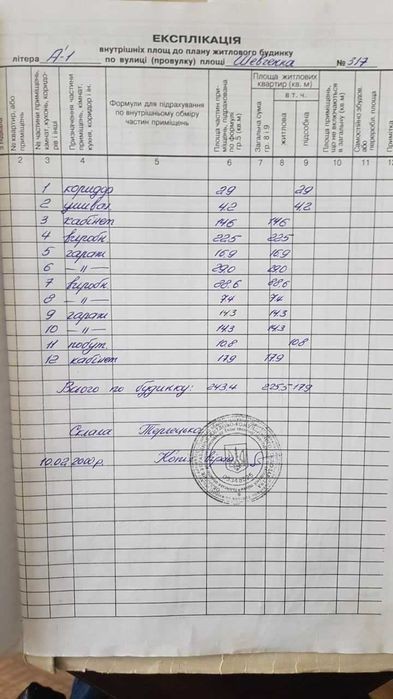 ЕКСПЛІКАЦІЯ
внутрішніх площ до плану житлового будинку
літера А'-1 по вулиці (провулку) площі Шевченка № 317
№ квартир, або приміщень
№ частини приміщень, кімнат, кухонь, коридорів і інші
Призначення частини приміщень, кімнат, кухня, коридор і ін.
Формули для підрахування по внутрішньому обміру частин приміщень
Площа частин приміщень, підрахована по формулі гр.5 (кв. м)
Площа житлових квартир (кв. м)
Загальна сума гр. 8 і 9
в т. ч.
житлова
підсобна
Площа приміщень, що не включаються в загальну (кв. м)
Самостійно збудов. або переробл. площа
Примітка
2 3 4 5 6 7 8 9 10 11 12
1 коридор 2,9 2,9
2 умивал. 4,2 4,2
3 кабінет 14,6 14,6
4 виробн. 22,5 22,5
5 гараж 16,9 16,9
6 — 〃 — 29,0 29,0
7 виробн. 88,6 88,6
8 — 〃 — 7,4 7,4
9 гараж 14,3 14,3
10 — 〃 — 14,3 14,3
11 побут. 10,8 10,8
12 кабінет 17,9 17,9
Всього по будинку: 243,4 225,5 17,9
Склала
10.02.2000р. Копія вірна